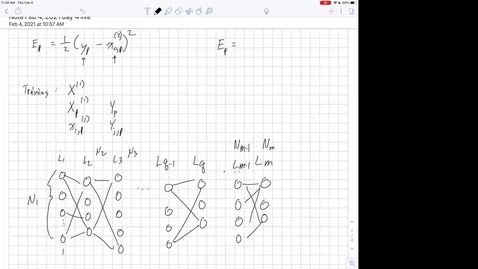 11:48 AM Thu Feb 4
Note Feb 4, 2021 day 4 live
Feb 4, 2021 at 10:57 AM
E_p = 1/2 (y_p - x_{qp}^{(2)})^2
E_p =
Training : X^{(1)}
X_p^{(1)} Y_p
x_{i,p}^{(1)} Y_{j,p}
N_2 N_3 N_{m-1} N_m
L_1 L_2 L_3 L_{q-1} L_q L_{m-1} L_m
N_1
...